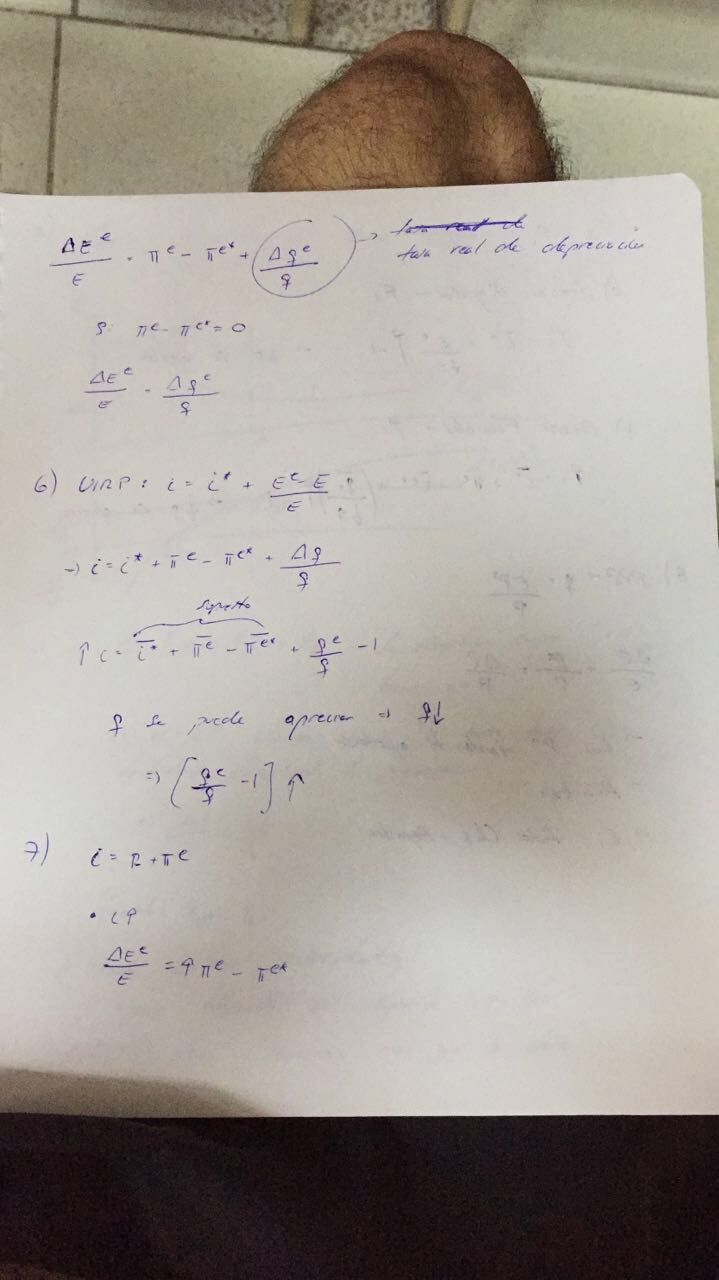 ΔE^e/E = π^e - π^e* + Δq^e/q → tasa real de
tasa real de depreciación
Si π^e - π^e* = 0
ΔE^e/E = Δq^e/q
6) UIRP: i = i* + (E^e - E)/E
→ i = i* + π^e - π^e* + Δq/q
supuesto
↑i = i̅* + π̅^e - π̅^e* + q^e/q - 1
q se puede apreciar ⇒ q↓
⇒ [q^e/q - 1] ↑
7) i = r + π^e
• i↑
ΔE^e/E = ↑π^e - π^e*